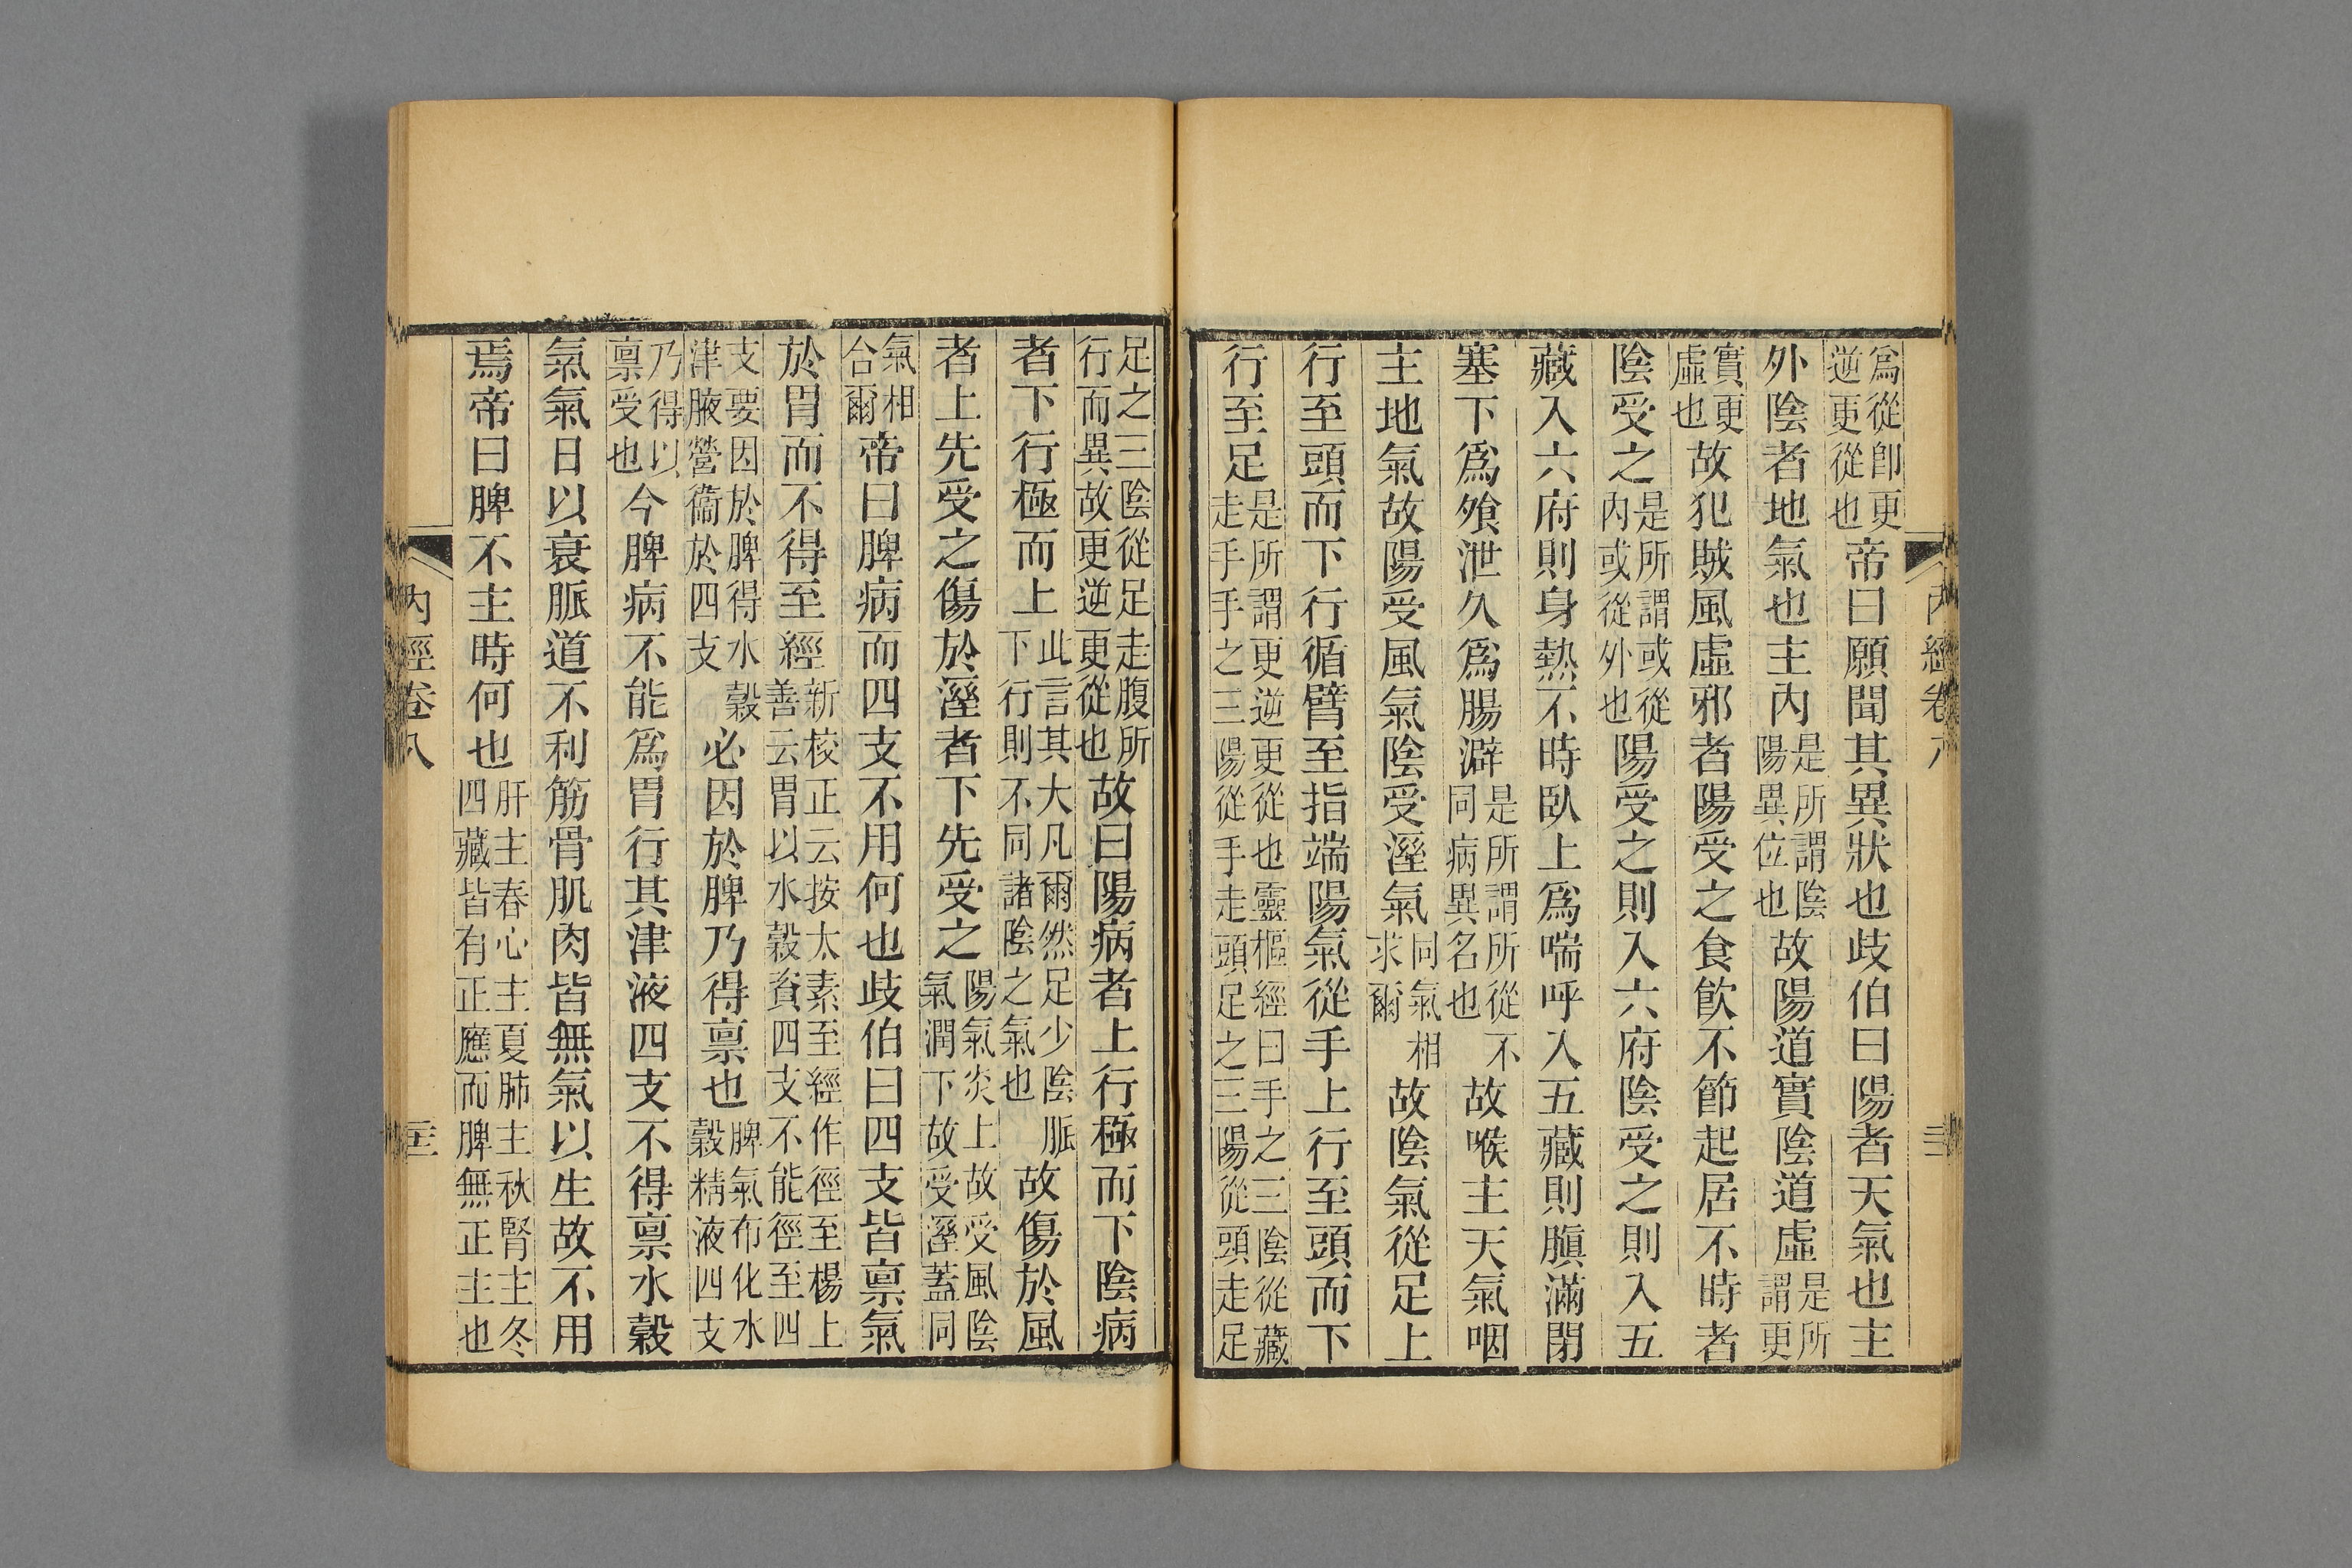 爲從卽更
逆更從也
帝曰願聞其異狀也歧伯曰陽者天氣也主
外陰者地氣也主內
是所謂陰
陽異位也
故陽道實陰道虛
是所
謂更
實更
虛也
故犯賊風虛邪者陽受之食飮不節起居不時者
陰受之
是所謂或從
內或從外也
陽受之則入六府陰受之則入五
藏入六府則身熱不時臥上爲喘呼入五藏則䐜滿閉
塞下爲飱泄久爲腸澼
是所謂所從不
同病異名也
故喉主天氣咽
主地氣故陽受風氣陰受溼氣
同氣相
求爾
故陰氣從足上
行至頭而下行循臂至指端陽氣從手上行至頭而下
行至足
是所謂更逆更從也靈樞經曰手之三陰從藏
走手手之三陽從手走頭足之三陽從頭走足
內經卷八
足之三陰從足走腹所
行而異故更逆更從也
故曰陽病者上行極而下陰病
者下行極而上
此言其大凡爾然足少陰脈
下行則不同諸陰之氣也
故傷於風
者上先受之傷於溼者下先受之
陽氣炎上故受風陰
氣潤下故受溼蓋同
氣相
合爾
帝曰脾病而四支不用何也歧伯曰四支皆禀氣
於胃而不得至經
新校正云按太素至經作徑至楊上
善云胃以水穀資四支不能徑至四
支要因於脾得水穀
津腋營衞於四支
必因於脾乃得禀也
脾氣布化水
穀精液四支
乃得以
禀受也
今脾病不能爲胃行其津液四支不得禀水穀
氣氣日以衰脈道不利筋骨肌肉皆無氣以生故不用
焉帝曰脾不主時何也
肝主春心主夏肺主秋腎主冬
四藏皆有正應而脾無正主也
內經卷八